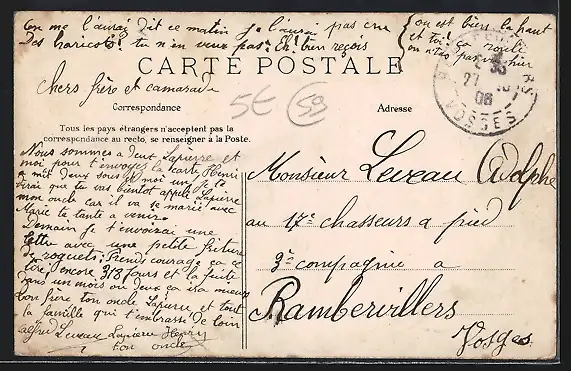 On me l'aurai dit ce matin je l'aurai pas cru
Des haricots! tu n'en veux pas? Eh! bien reçois
on est bien là haut
et toi! ça roule
CARTE POSTALE
chers frère et camarade
5€ 59
Correspondance
Adresse
Tous les pays étrangers n'acceptent pas la
correspondance au recto, se renseigner à la Poste.
27
08
VOSGES
Nous sommes a deux Lapierre et
moi pour t'envoyer la carte Henri
a mit deux sous et moi un je te
dirai que tu vas bientot appelé Lapierre
mon oncle car il va se marié avec
Marie ta tante a venir.
Demain je t'envoirai une
lettre avec une petite friture
de roquets; Prends courage ça a
tiré, encore 318 jours et la fuite
dans un mois ou deux ça ira mieux
ton frère ton oncle Lapierre, et tout
la famille qui t'embrasse de loin
alfred Leveau Lapierre Henry
ton oncle
Monsieur Leveau Adolphe
au 17e chasseurs a pied
3e compagnie a
Rambervillers
Vosges